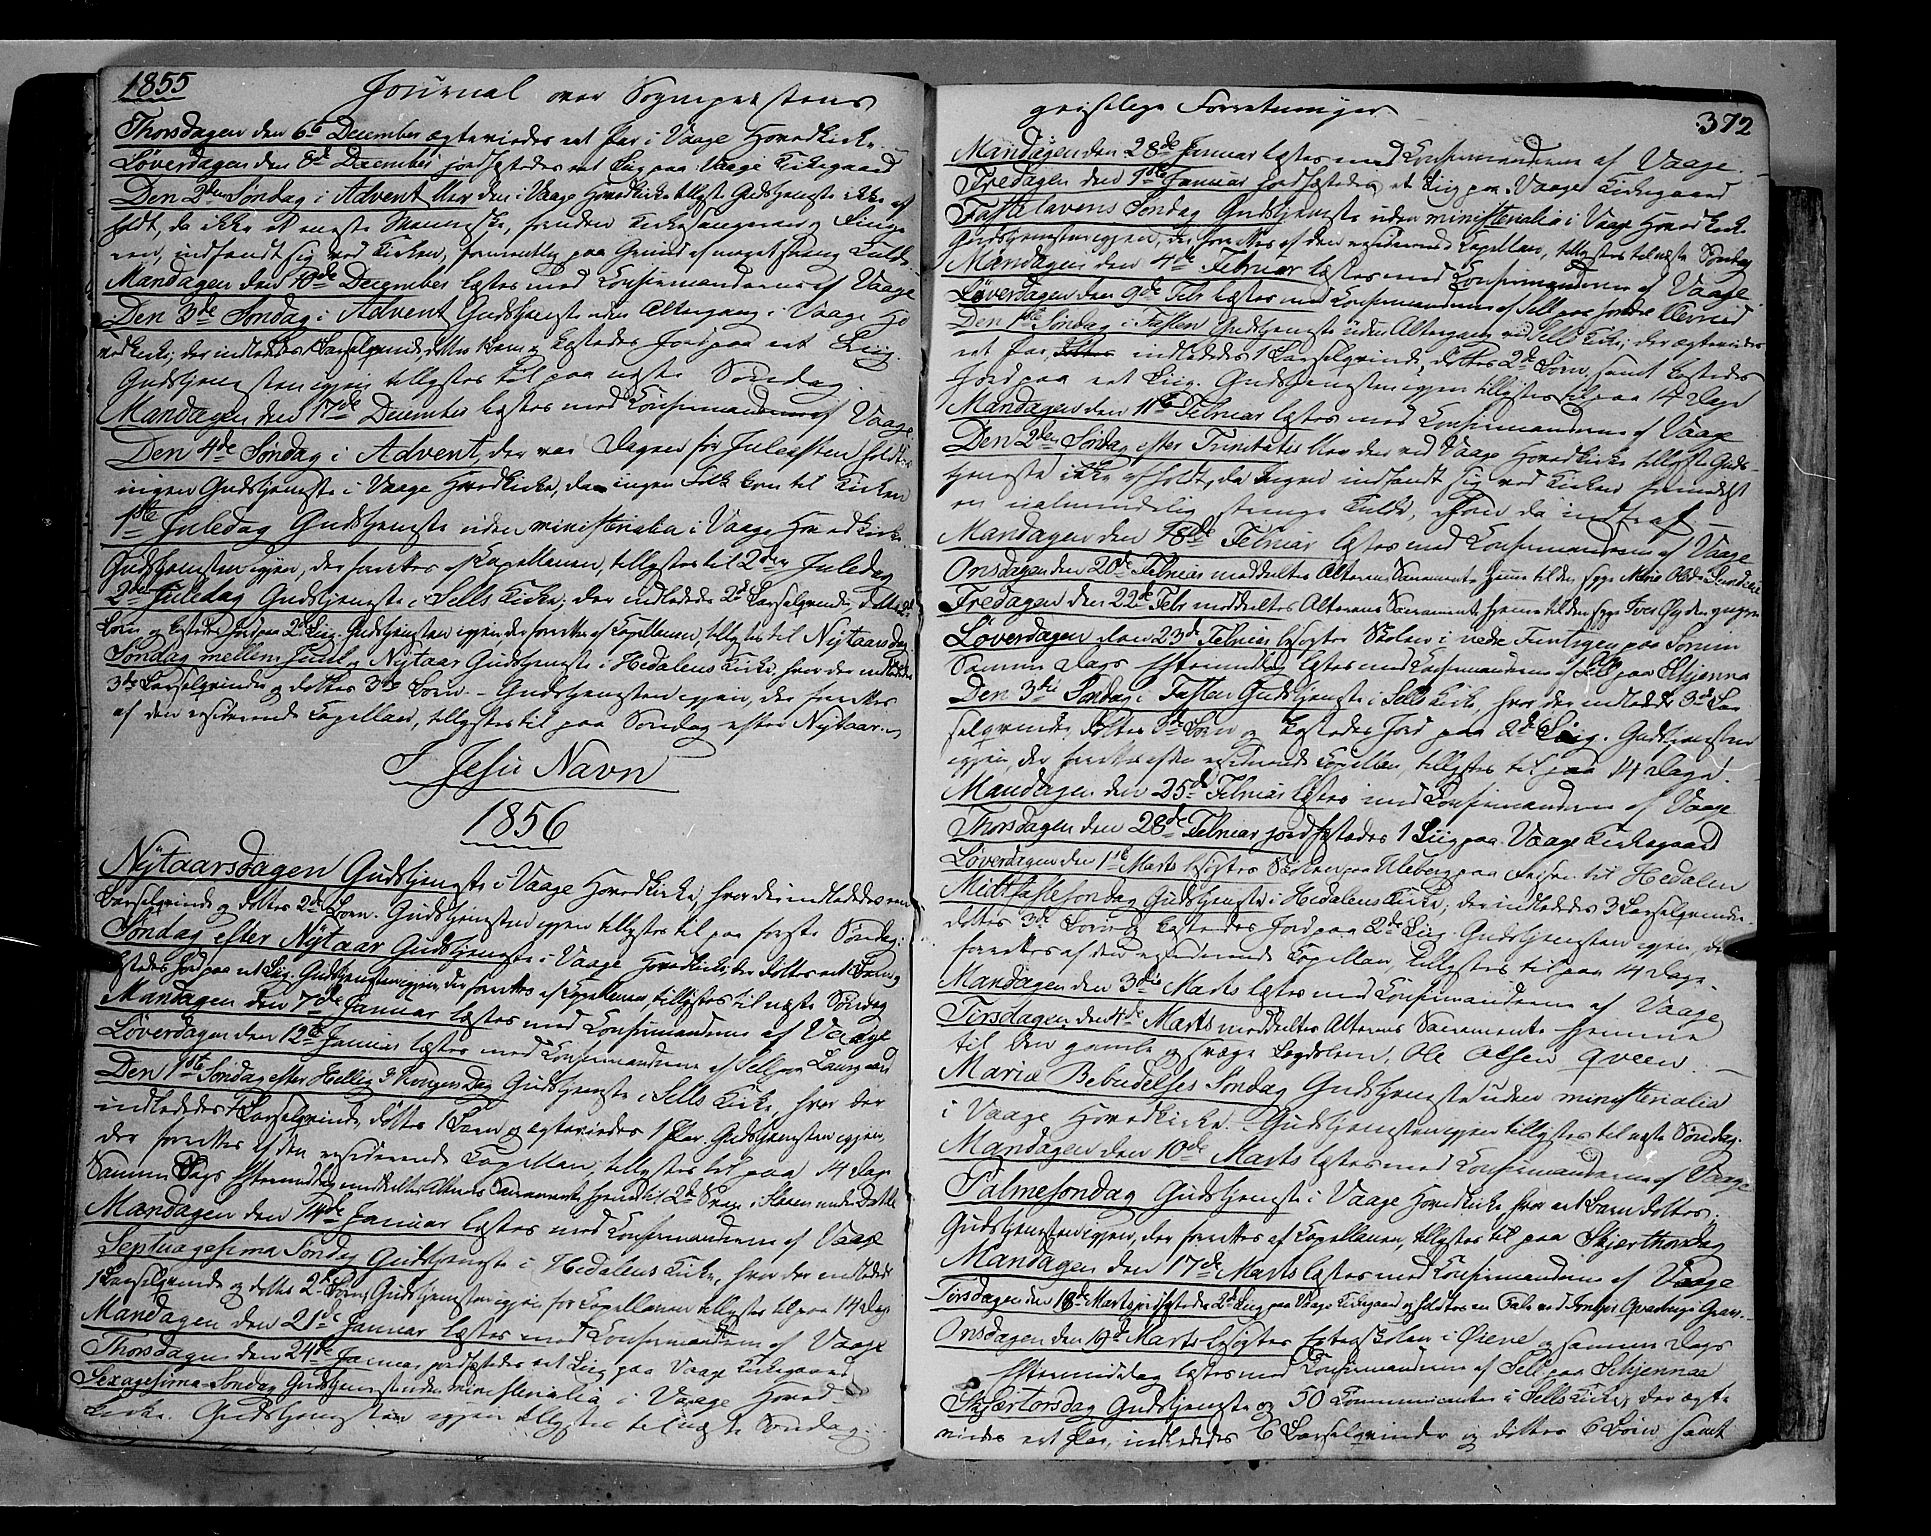 1855
Journal over Sognepræstens
Thorsdagen den 6te December ægteviedes eet Par i Vaage Hovedkirke.
Løverdagen den 8de December jordfæstedes eet Liig paa Vaage Kirkegaard
Den 2den Søndag i Advent blev den i Vaage Hovedkirke tillyste Gudstjeneste ikke af
holdt, da ikke et eneste Menneske, foruden Kirkesangeren og
ren, indfandt sig ved Kirken, formentlig paa Grund af meget streng Kulde.
Mandagen den 10de December læstes med Confirmanderne af Vaage
Den 3de Søndag i Advent Gudstjeneste uden Altergang i Vaage Ho
vedkirke; der indlededes 1 Barselqvinde, døbtes 1 Barn og kastedes Jord paa eet Liig.
Gudstjenesten igjen tillystes til paa neste Søndag.
Mandagen den 17de December læstes med Confirmanderne af Vaage
Den 4de Søndag i Advent, der var Dagen før Juleaften holdtes
ingen Gudstjeneste i Vaage Hovedkirke, da ingen Folk kom til Kirken
1ste Juledag Gudstjeneste uden ministerialia i Vaage Hovedkirke.
Gudstjenesten igjen, der forrettes af Capellanen, tillystes til 2den Juledag
2den Juledag Gudstjeneste i Sells Kirke; der indlededes 2de Barselqvinder, døbtes 2de
Børn og kastedes Jord paa 2de Liig. Gudstjenesten igjen der forrettes af Capellanen tillystes til Nytaarsdag.
Søndag mellem Juul og Nytaar Gudstjeneste i Hedalens Kirke, hvor der indlededes
3de Barselqvinder og døbtes 3de Børn. - Gudstjenesten igjen, der forrettes
af den residerende Capellan, tillystes til paa Søndag efter Nytaar.
I Jesu Navn
1856
Nytaarsdagen Gudstjeneste i Vaage Hovedkirke, hvor der indlededes een
Barselqvinde og døbtes 2de Børn. Gudstjenesten igjen tillystes til paa første Søndag.
Søndag efter Nytaar Gudstjeneste i Vaage Hovedkirke; der døbtes eet Barn og
kastedes Jord paa eet Liig. Gudstjenesten igjen, der forrettes af Capellanen, tillystes til næste Søndag
Mandagen den 7de Januar læstes med Confirmanderne af Vaage
Løverdagen den 12te Januar læstes med Confirmanderne af Sell paa Laurgaard
Den 1ste Søndag efter Hellig 3 Kongers Dag Gudstjeneste i Sells Kirke, hvor der
indlededes 1 Barselqvinde, døbtes 1 Barn og ægteviedes 1 Par. Gudstjenesten igjen,
der forrettes af den residerende Capellan, tillystes til paa 14 Dage
Samme Dags Eftermiddag meddeltes Alterens Sacramente hjemme til 2de Syge i
Mandagen den 14de Januar læstes med Confirmanderne af Vaage
Septuagesima Søndag Gudstjeneste i Hedalens Kirke, hvor der indlededes
1 Barselqvinde og døbtes 2de Børn; Gudstjenesten igjen for Capellanen tillystes til paa 14 Dage
Mandagen den 21de Januar læstes med Confirmanderne af Vaage
Thorsdagen den 24de Januar jordfæstedes eet Liig paa Vaage Kirkegaard
Sexagesima Søndag Gudstjeneste uden ministerialia i Vaage Hoved-
kirke. Gudstjenesten igjen tillystes til neste Søndag.
geistlige Forretninger
372
Mandagen den 28de Januar læstes med Confirmanderne af Vaage.
Fredagen den 1ste Januar jordfæstedes et Liig paa Vaage Kirkegaard
Fastelavens Søndag Gudstjeneste uden ministerialia i Vaage Hovedkirke.
Gudstjenesten igjen, der forrettes af den residerende Capellan, tillystes til næste Søndag
Mandagen den 4de Februar læstes med Confirmanderne af Vaage.
Løverdagen den 9de Febr læstes med Confirmanderne af Sell paa
Den 1ste Søndag i Fasten Gudstjeneste uden Altergang ved Sells Kirke; der ægteviedes
eet Par, indlededes 1 Barselqvinde, døbtes 2de Børn samt kastedes
Jord paa eet Liig. Gudstjenesten igjen tillystes til paa 14 Dage
Mandagen den 11te Februar læstes med Confirmanderne af Vaage
Den 2den Søndag efter Trinitatis blev den ved Vaage Hovedkirke tillyste Guds-
tjeneste ikke afholdt, da Ingen indfandt sig ved Kirken formedelst
en ualmindelig strenge Kulde, som da indtraf.
Mandagen den 18de Februar læstes med Confirmanderne af Vaage
Onsdagen den 20de Februar meddeltes Alterens Sacramente hjemme til den syge Marie
Fredagen den 22de Febr meddeltes Alterens Sacramente hjemme til den syge Iver
Løverdagen den 23de Februar besøgtes Skolen i
Samme Dags Eftermiddag læstes med Confirmanderne af Sell paa Selsjenna
Den 3die Søndag i Fasten Gudstjeneste i Sells Kirke, hvor der indlededes 3de Bar
selqvinder, døbtes 3de Børn og kastedes Jord paa 2de Liig. Gudstjenesten
igjen, der forrettes af den residerende Capellan, tillystes til paa 14 Dage.
Mandagen den 25de Februar læstes med Confirmanderne af Vaage
Thorsdagen den 28de Februar jordfæstedes 1 Liig paa Vaage Kirkegaard
Løverdagen den 1ste Marts besøgtes Skolen paa Uleberg paa Reisen til Hedalen
Midtfastesøndag Gudstjeneste i Hedalens Kirke; der indlededes 3 Barselqvinder
døbtes 3de Børn og kastedes Jord paa 2de Liig. Gudstjenesten igjen, der
forrettes af den residerende Capellan, tillystes til paa 14 Dage.
Mandagen den 3die Marts læstes med Confirmanderne af Vaage
Tirsdagen den 4de Marts meddeltes Alterens Sacramente hjemme
til den gamle og svage Lægdslem, Ole Olsen Qveen.
Mariæ Bebudelses Søndag Gudstjeneste uden ministerialia
i Vaage Hovedkirke. Gudstjenesten igjen tillystes til neste Søndag.
Mandagen den 10de Marts læstes med Confirmanderne af Vaage
Palmesøndag Gudstjeneste i Vaage Hovedkirke hvor eet Barn døbtes.
Gudstjenesten igjen, der forrettes af Capellanen, tillystes til paa Skjærthorsdag
Mandagen den 17de Marts læstes med Confirmanderne af Vaage
Tirsdagen den 18de Marts jordfæstedes 2de Liig paa Vaage Kirkegaard og holdtes en Tale ved
Onsdagen den 19de Marts besøgtes Exterskolen i Øiene og samme Dags
Eftermiddag læstes med Confirmanderne af Sell paa Selsjennæ
Skjærtorsdag Gudstjeneste og 50 Communicanter i Sells Kirke; der ægte
viedes eet Par, indlededes 6 Barselqvinder og døbtes 6 Børn samt